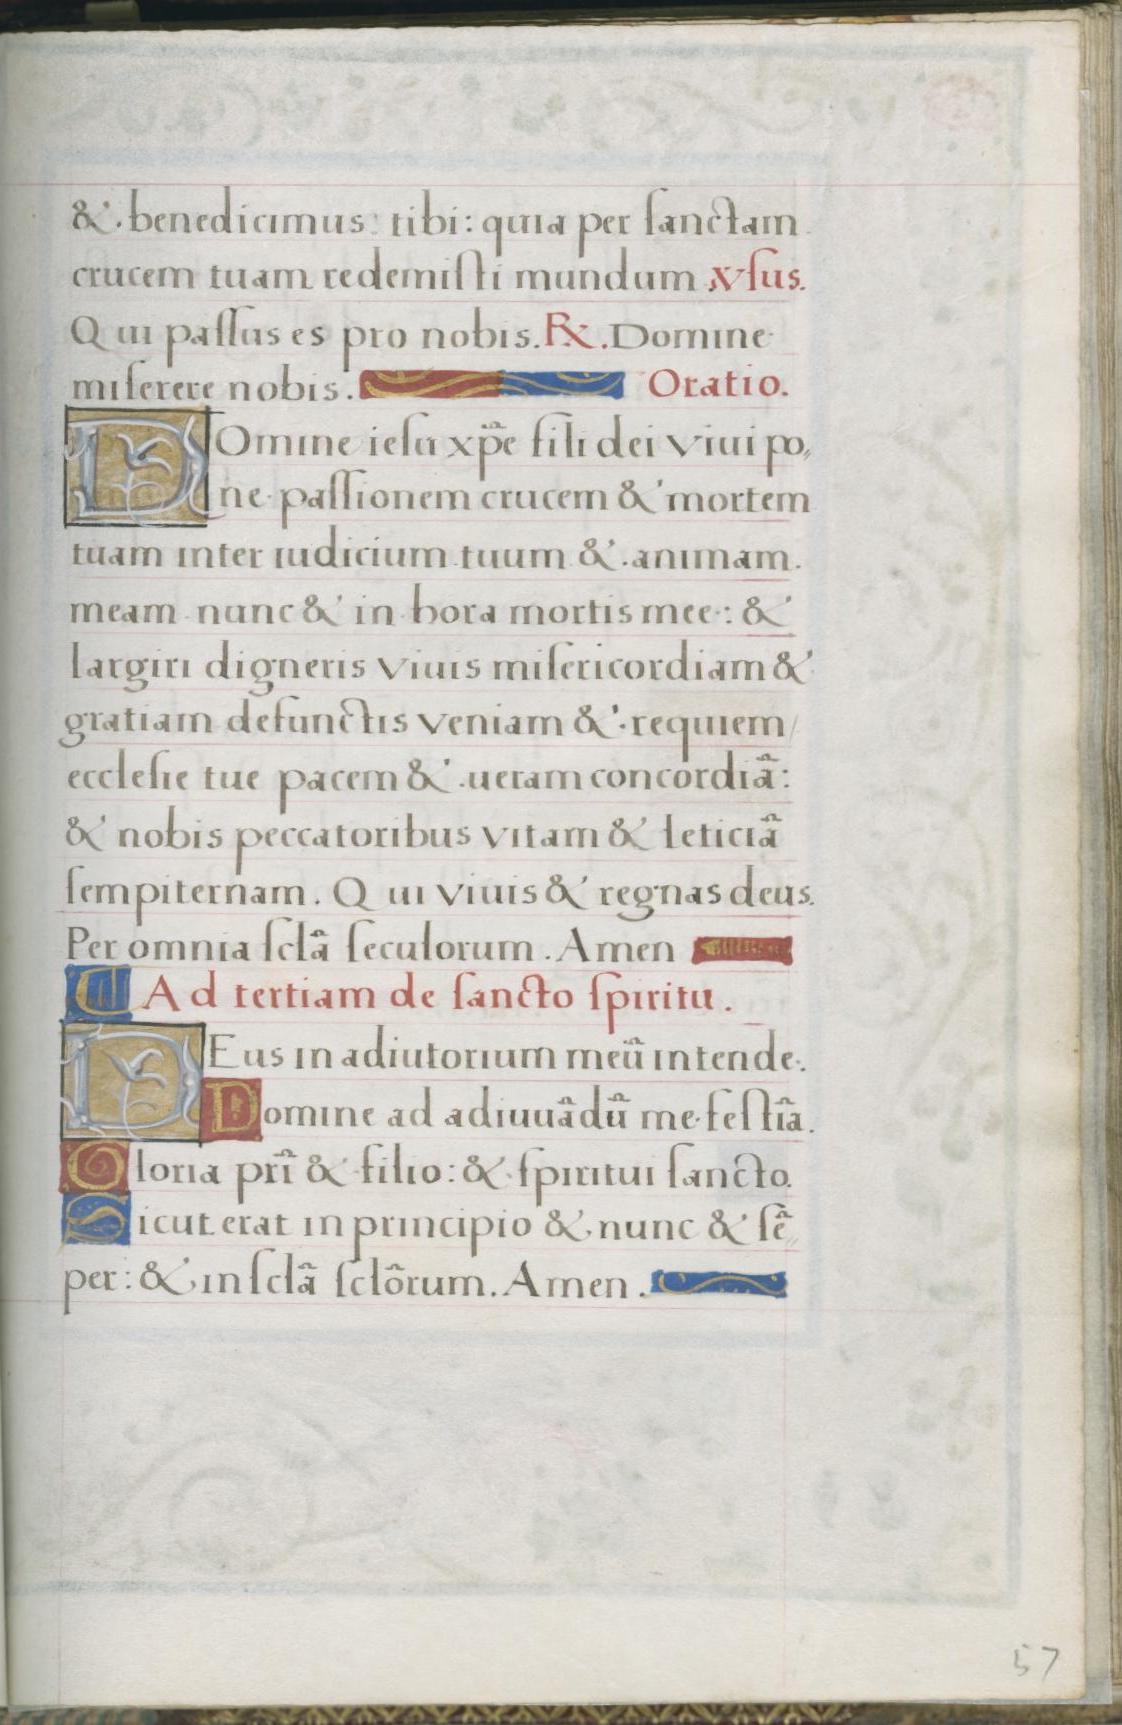 & benedicimus: tibi: quia per ſanctam
crucem tuam redemiſti mundum v̇ſus.
Qui paſſus es pro nobis. ℟. Domine
miſerere nobis. Oratio.
DOmine ieſu xp̃e fili dei viui po„
ne paſſionem crucem & mortem
tuam inter iudicium tuum & animam.
meam nunc & in hora mortis mee: &
largiri digneris viuis miſericordiam &
gratiam defunctis veniam & requiem/
eccleſie tue pacem & ueram concordiã:
& nobis peccatoribus vitam & leticiã
ſempiternam. Qui viuis & regnas deus.
Per omnia ſclã ſeculorum. Amen
Ad tertiam de ſancto ſpiritu.
DEus in adiutorium meũ intende.
Domine ad adiuuãdũ me feſtĩa.
Gloria prĩ & filio: & ſpiritui ſancto.
Sicut erat in principio & nunc & ſẽ„
per: & in ſclã ſclõrum. Amen.
57